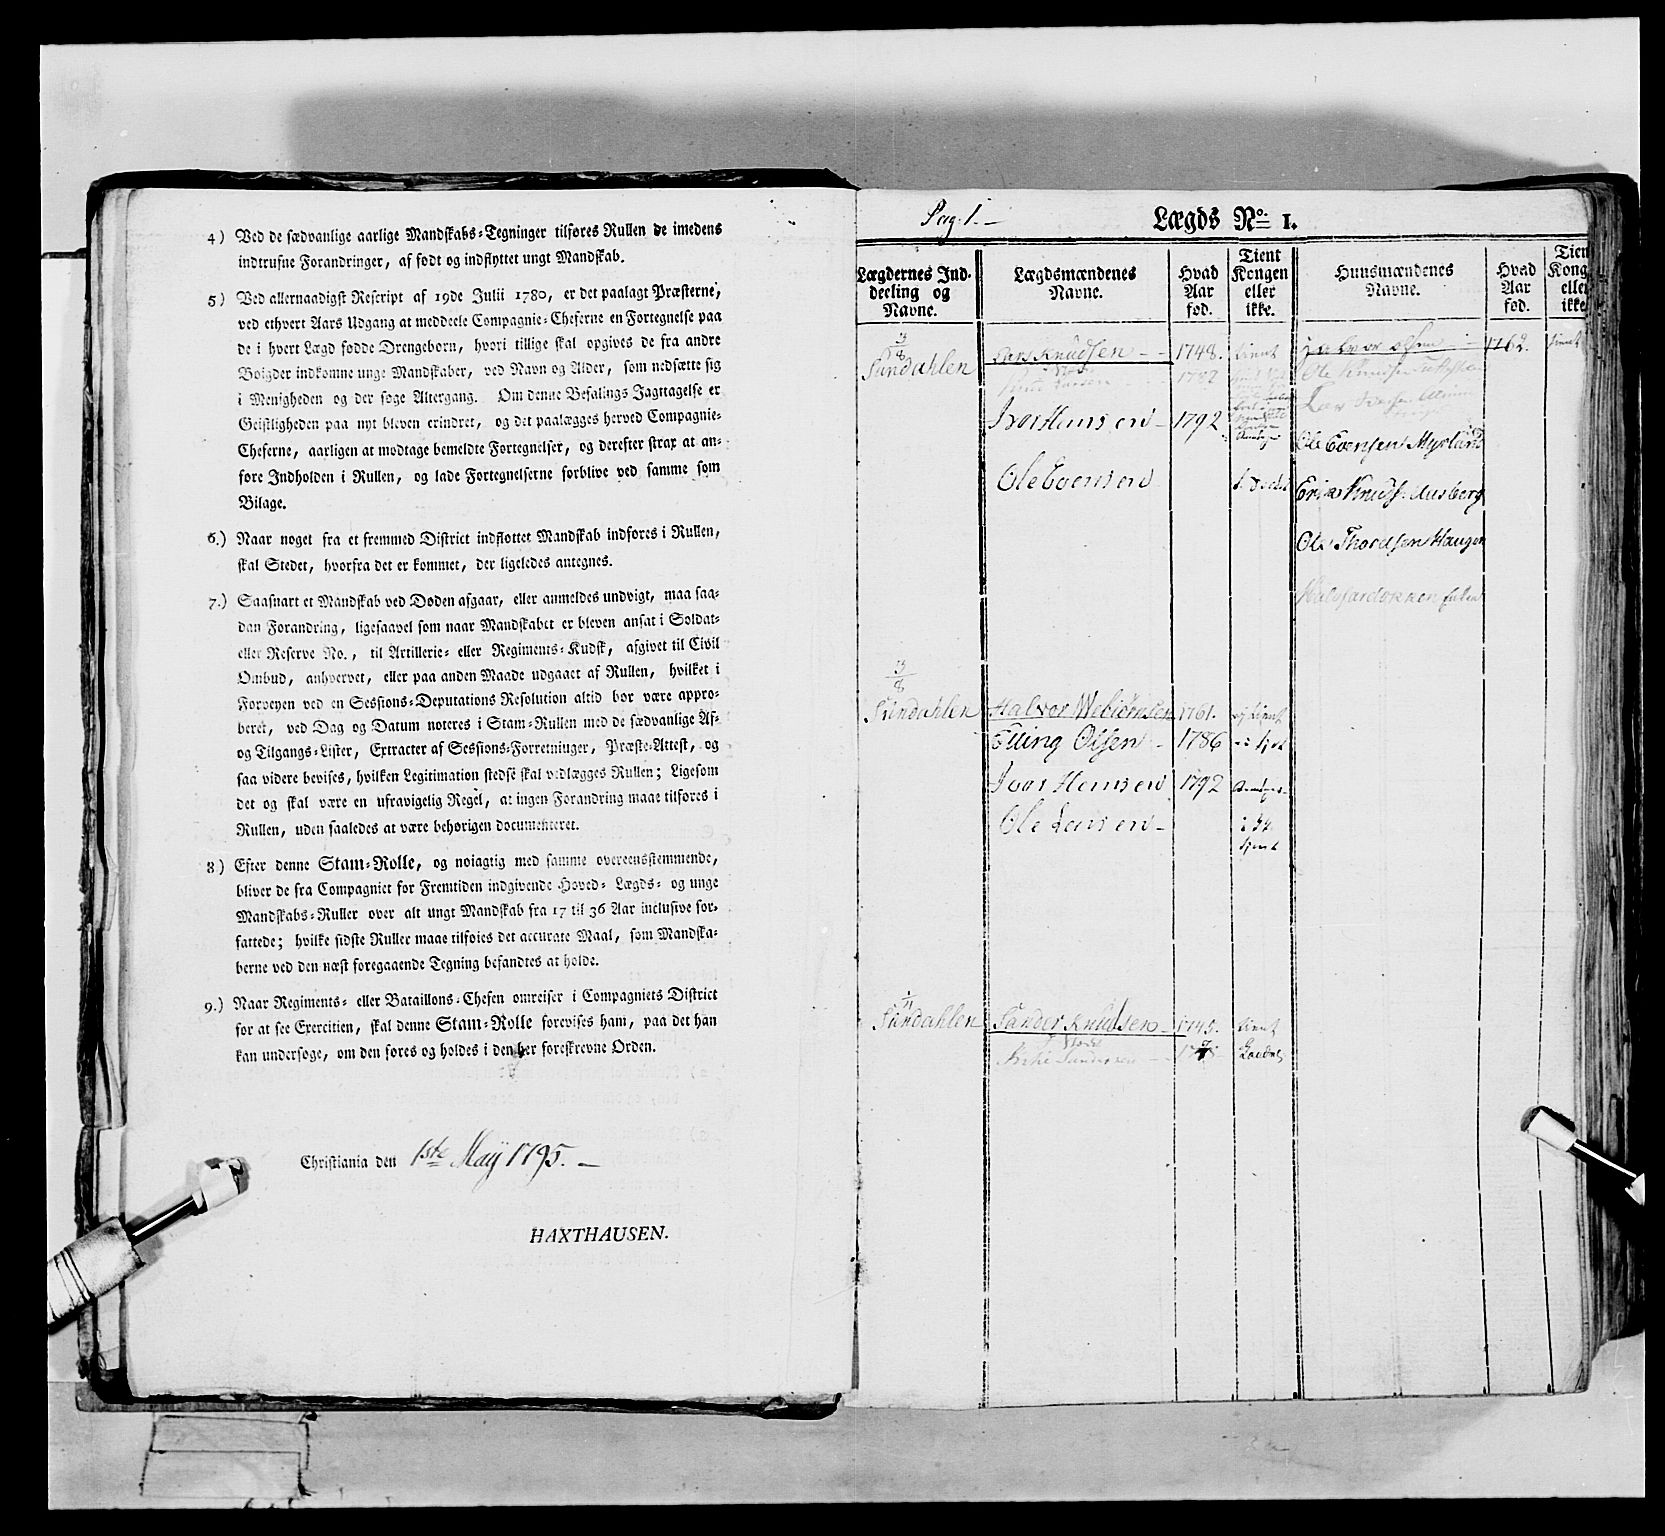 4) Ved de sædvanlige aarlige Mandskabs-Tegninger tilføres Rullen de imedens
indtrufne Forandringer, af født og indflyttet ungt Mandskab.
5) Ved allernaadigst Rescript af 19de Julii 1780, er det paalagt Præsterne,
ved ethvert Aars Udgang at meddeele Compagnie-Cheferne en Fortegnelse paa
de i hvert Lægd fødde Drengebørn, hvori tillige skal opgives de fra andre
Boigder indkomne unge Mandskaber, ved Navn og Alder, som nedsætte sig
i Menigheden og der søge Altergang. Om denne Befalings Jagttagelse er
Geistligheden paa nyt bleven erindret, og det paalægges herved Compagnie-
Cheferne, aarligen at modtage bemeldte Fortegnelser, og derefter strax at an-
føre Indholden i Rullen, og lade Fortegnelserne forblive ved samme som
Bilage.
6.) Naar noget fra et fremmed District indfløttet Mandskab indføres i Rullen,
skal Stedet, hvorfra det er kommet, der ligeledes antegnes.
7.) Saasnart et Mandskab ved Døden afgaar, eller anmeldes undvigt, maa saa-
dan Forandring, ligesaavel som naar Mandskabet er bleven ansat i Soldat-
eller Reserve No., til Artillerie- eller Regiments-Kudsk, afgivet til Civil
Ombud, anhvervet, eller paa anden Maade udgaaet af Rullen, hvilket i
Forveyen ved en Sessions-Deputations Resolution altid bør være appro-
beret, ved Dag og Datum noteres i Stam-Rullen med de sædvanlige Af-
og Tilgangs-Lister, Extracter af Sessions-Forretninger, Præste-Attest, og
saa videre bevises, hvilken Legitimation stedse skal vedlægges Rullen; Ligesom
det og skal være en ufravigelig Regel, at ingen Forandring maae tilføres i
Rullen, uden saaledes at være behørigen documenteret.
8) Efter denne Stam-Rolle, og noiagtig med samme overeensstemmende,
bliver de fra Compagniet for Fremtiden indgivende Hoved- Lægds- og unge
Mandskabs-Ruller over alt ungt Mandskab fra 17 til 36 Aar inclusive for-
fattede; hvilke sidste Ruller maae tilføies det accurate Maal, som Mandska-
berne ved den næst foregaaende Tegning befandtes at holde.
9.) Naar Regiments- eller Bataillons-Chefen omreiser i Compagniets District
for at see Exercitien, skal denne Stam-Rolle forevises ham, paa det han
kan undersøge, om den føres og holdes i den her foreskrevne Orden.
Christiania den 1ste Maij 1795.
HAXTHAUSEN.
Pag. 1. Lægds No. 1.
Lægdernes Ind-
deeling og
Navne.
Lægdsmændenes
Navne.
Hvad
Aar
fød.
Tient
Kongen
eller
ikke.
Huusmændenes
Navne.
Hvad
Aar
fød.
Tien
Kong
elle
ikke
Sundahlen Lars Knudsen 1748. tient Halvor Olsen 1762. tient
1782 Ole Knudsen
Ivar Hemsen 1792
Ole Evensen Myrland
Ole Evensen Erik Knuds. Aasberg
Ole Thordsen Haugen
Sundahlen Halvor Webiørnsen 1761. ej tient
Elling Olsen 1786
Ivar Hemsen 1792
Ole Larsen
Sundahlen Sander Knudsen 1745. tient
Sandersen